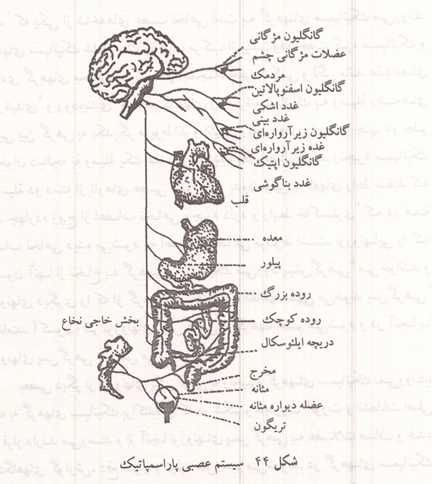 گانگلیون مژگانی
عضلات مژگانی چشم
مردمک
گانگلیون اسفنوپالاتین
غدد اشکی
غدد بینی
گانگلیون زیرآرواره‌ای
غده زیرآرواره‌ای
گانگلیون اپتیک
غدد بناگوشی
قلب
معده
پیلور
روده بزرگ
روده کوچک
بخش خاجی نخاع
دریچه ایلئوسکال
مخرج
مثانه
عضله دیواره مثانه
تریگون
شکل ۴۴ سیستم عصبی پاراسمپاتیک